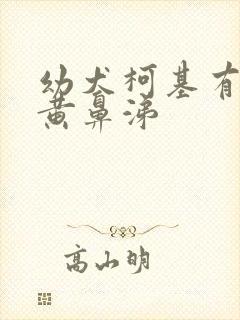 幼犬柯基有
黄鼻涕
高山明